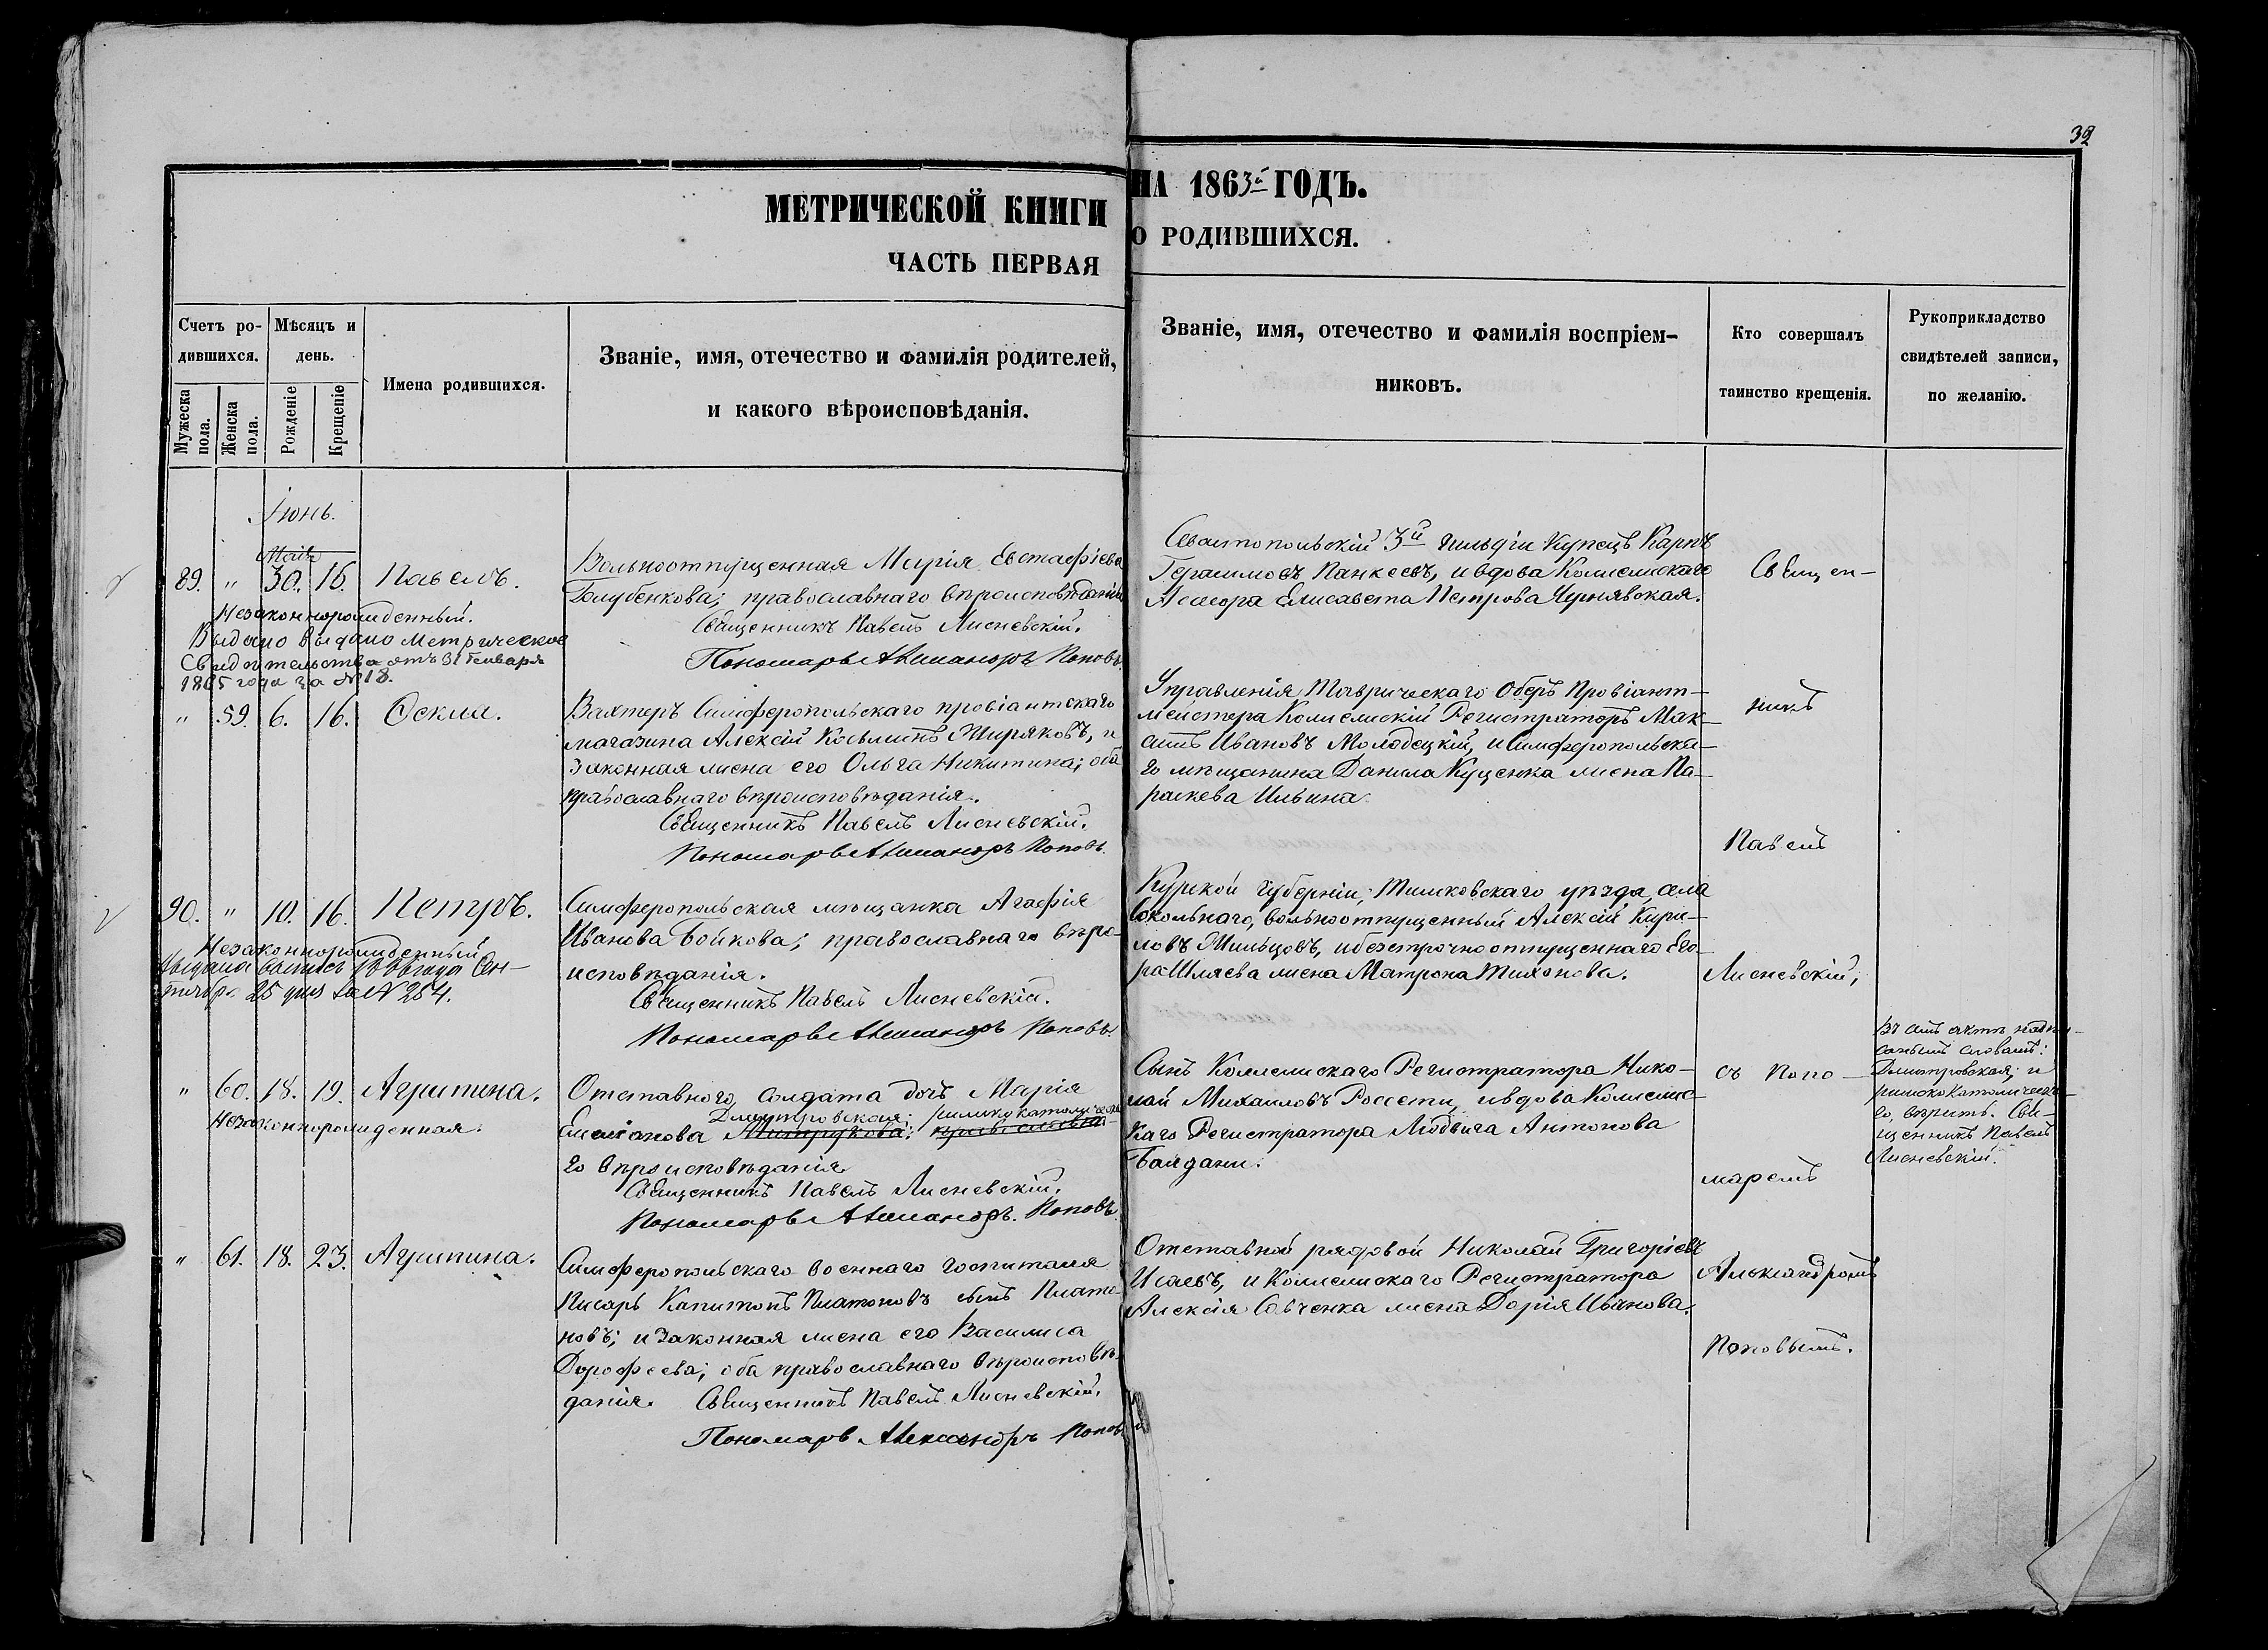 32
МЕТРИЧЕСКОЙ КНИГИ НА 1863й ГОДЪ.
ЧАСТЬ ПЕРВАЯ О РОДИВШИХСЯ.
Счетъ ро-
дившихся.
Мужеска
пола.
Женска
пола.
Мѣсяцъ и
день.
Рожденіе
Крещеніе
Имена родившихся.
Званіе, имя, отечество и фамилія родителей,
и какого вѣроисповѣданія.
Званіе, имя, отечество и фамилія воспріем-
никовъ.
Кто совершалъ
таинство крещенія.
Рукоприкладство
свидѣтелей записи,
по желанію.
Іюнь.
Маія
89. " 30. 16. Павелъ.
Незаконнорожденный.
Выдано выдано метрическое
Свидѣтельство отъ 31 Генваря
1865 года за №18.
Вольноотпущенная Марія Евстафіева
Голубенкова; православнаго вѣроисповѣданія
Священникъ Павелъ Лисневскій.
Пономарь Александръ Поповъ.
Севастопольскій 3й гильдіи Купецъ Карпъ
Герасимовъ Панкеевъ, и вдова Коллежскаго
Ассесора Елисавета Петрова Чернявская.
" 59. 6. 16. Фекла.
Вахтеръ Симферопольскаго провіантскаго
магазина Алексій Косьминъ Ширяковъ, и
законная жена его Ольга Никитина; оба
православнаго вѣроисповѣданія.
Священникъ Павелъ Лисневскій.
Пономарь Александръ Поповъ.
Управленія Таврическаго Оберъ Провіант-
мейстера Коллежскій Регистраторъ Мак-
симъ Ивановъ Молодецкій, и Симферопольска-
го мѣщанина Данила Куценка жена Па-
раскева Ильина.
90. " 10. 16. Петръ.
Незаконнорожденный
25 дня за № 254.
Симферопольская мѣщанка Агафія
Иванова Бойкова; православнаго вѣро-
исповѣданія.
Священникъ Павелъ Лисневскій.
Пономарь Александръ Поповъ.
Курской Губерніи, Тимковскаго уѣзда, села
Сокольнаго, вольноотпущенный Алексій Кири-
ловъ Жильцовъ, и безсрочноотпущеннаго Его-
ра Шляева жена Матрона Тихонова.
" 60. 18. 19. Агрипина.
Незаконнорожденная.
Отставного солдата дочь Марія
Дмитровская; римско католическа-
Емеліанова Митрукова; православна-
го вѣроисповѣданія.
Священникъ Павелъ Лисневскій.
Пономарь Александръ Поповъ.
Сынъ Коллежскаго Регистратора Нико-
лай Михаиловъ Россети, и вдова Коллежс-
каго Регистратора Людвига Антонова
Байдани.
Въ семъ актѣ надпи-
саннымъ словамъ:
Дмитровская; и
римско католическа-
го, вѣрить. Свя-
щенникъ Павелъ
Лисневскій.
" 61. 18. 23. Агрипина.
Симферопольскаго военнаго госпиталя
Писарь Капитонъ Платоновъ сынъ Плато-
новъ; и законная жена его Василиса
Дорофеева; оба православнаго вѣроисповѣ-
данія. Священникъ Павелъ Лисневскій.
Пономарь Александръ Поповъ
Отставной рядовой Николай Григоріевъ
Исаевъ, и Коллежскаго Регистратора
Алексія Савченка жена Дарія Иванова.
Священ-
никъ
Павелъ
Лисневскій,
съ Поно-
маремъ
Александромъ
Поповымъ.